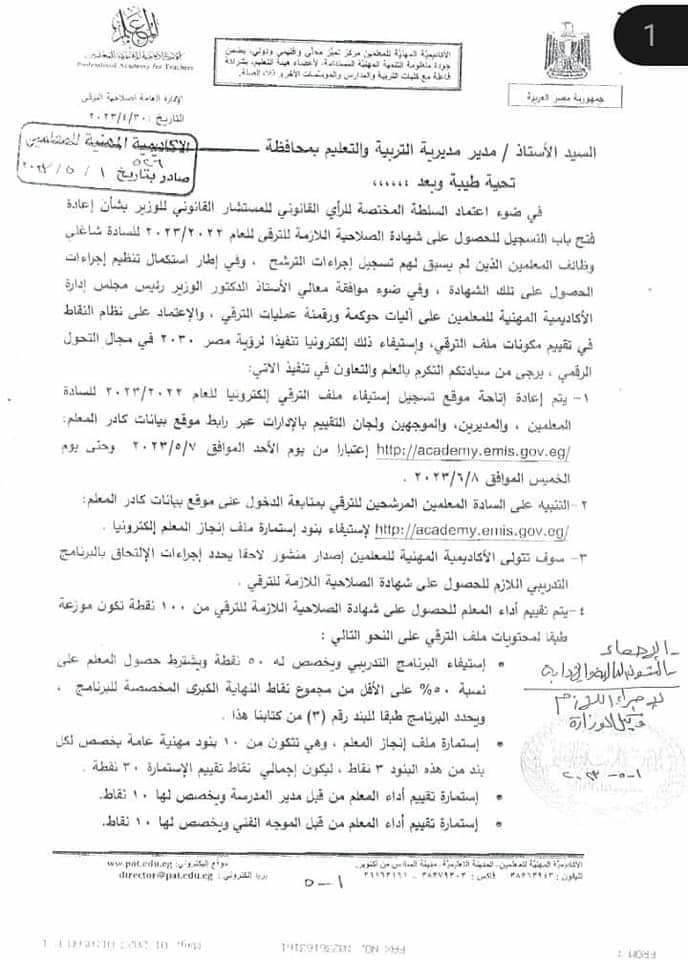 1
المعلم
Professional Academy for Teachers
الأكاديمية المهنية للمعلمين مركز تميز محلي وإقليمي ودولي، يضمن
جودة منظومة التنمية المهنية المستدامة، لأعضاء هيئة التعليم، بشراكة
فاعلة مع كليات التربية والمدارس والمؤسسات الأخرى ذات الصلة.
جمهورية مصر العربية
الإدارة العامة لصلاحية الترقي
التاريخ : ٢٠٢٣/٤/٣٠
الأكاديمية المهنية للمعلمين
٥٤٦
صادر بتاريخ ١ / ٥ / ٢٠٢٣
السيد الأستاذ / مدير مديرية التربية والتعليم بمحافظة
تحية طيبة وبعد ،،،،،،
في ضوء اعتماد السلطة المختصة للرأي القانوني للمستشار القانوني للوزير بشأن إعادة
فتح باب التسجيل للحصول على شهادة الصلاحية اللازمة للترقى للعام ٢٠٢٣/٢٠٢٢ للسادة شاغلي
وظائف المعلمين الذين لم يسبق لهم تسجيل إجراءات الترشح ، وفي إطار استكمال تنظيم إجراءات
الحصول على تلك الشهادة ، وفي ضوء موافقة معالي الأستاذ الدكتور الوزير رئيس مجلس إدارة
الأكاديمية المهنية للمعلمين على آليات حوكمة ورقمنة عمليات الترقي ، والإعتماد على نظام النقاط
في تقييم مكونات ملف الترقي، وإستيفاء ذلك إلكترونيا تنفيذا لرؤية مصر ٢٠٣٠ في مجال التحول
الرقمي ، يرجى من سيادتكم التكرم بالعلم والتعاون في تنفيذ الاتي:
١- يتم إعادة إتاحة موقع تسجيل إستيفاء ملف الترقي إلكترونيا للعام ٢٠٢٣/٢٠٢٢ للسادة
المعلمين ، والمديرين، والموجهين ولجان التقييم بالإدارات عبر رابط موقع بيانات كادر المعلم:
http://academy.emis.gov.eg/ إعتبارا من يوم الأحد الموافق ٢٠٢٣/٥/٧ وحتى يوم
الخميس الموافق ٢٠٢٣/٦/٨ .
٢- التنبيه على السادة المعلمين المرشحين للترقي بمتابعة الدخول على موقع بيانات كادر المعلم:
http://academy.emis.gov.eg/ لإستيفاء بنود إستمارة ملف إنجاز المعلم إلكترونيا .
٣- سوف تتولى الأكاديمية المهنية للمعلمين إصدار منشور لاحقا يحدد إجراءات الإلتحاق بالبرنامج
التدريبي اللازم للحصول على شهادة الصلاحية اللازمة للترقي .
٤- يتم تقييم أداء المعلم للحصول على شهادة الصلاحية اللازمة للترقي من ١٠٠ نقطة تكون موزعة
طبقا لمحتويات ملف الترقي على النحو التالي :
• إستيفاء البرنامج التدريبي ويخصص له ٥٠ نقطة ويشترط حصول المعلم على
نسبة ٥٠% على الأقل من مجموع نقاط النهاية الكبرى المخصصة للبرنامج ،
ويحدد البرنامج طبقا للبند رقم (٣) من كتابنا هذا .
• إستمارة ملف إنجاز المعلم ، وهي تتكون من ١٠ بنود مهنية عامة يخصص لكل
بند من هذه البنود ٣ نقاط ، ليكون إجمالي نقاط تقييم الإستمارة ٣٠ نقطة .
• إستمارة تقييم أداء المعلم من قبل مدير المدرسة ويخصص لها ١٠ نقاط.
• إستمارة تقييم أداء المعلم من قبل الموجه الفني ويخصص لها ١٠ نقاط.
الإحصاء
لإجراء اللازم
وكيل الوزارة
٢٠٢٣-٥-١
الأكاديمية المهنية للمعلمين، المدينة التعليمية، مدينة السادس من أكتوبر.
موقع إليكتروني: www.pat.edu.eg
بريد إليكتروني: director@pat.edu.eg
١-٥
FROM :
FAX NO. :0238163161